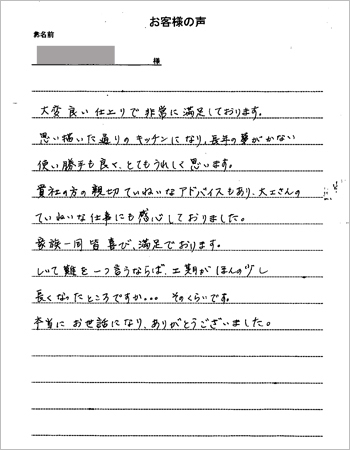 お客様の声
お名前
様
大変良い仕上りで非常に満足しております。
思い描いた通りのキッチンになり、長年の夢がかない
使い勝手も良く、とてもうれしく思います。
貴社の方の親切ていねいなアドバイスもあり、大工さんの
ていねいな仕事にも感心しておりました。
家族一同皆喜び、満足でおります。
しいて難を一つ言うならば、工期がほんの少し
長くなったところですか。。。そのくらいです。
本当にお世話になり、ありがとうございました。